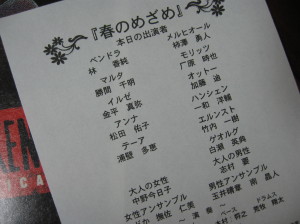 『春のめざめ』
本日の出演者
ベンドラ
林 香純
マルタ
勝間 千明
イルゼ
金平 真弥
アンナ
松田 佑子
テーア
浦壁 多恵
メルヒオール
柿澤 勇人
モリッツ
厂原 時也
オットー
加藤 迪
ハンシェン
一和 洋輔
エルンスト
竹内 一樹
ゲオルグ
白瀬 英典
大人の女性
中野今日子
大人の男性
志村 要
女性アンサンブル
撫佐 仁美
男性アンサンブル
玉井晴章 南 晶人
ドラムス